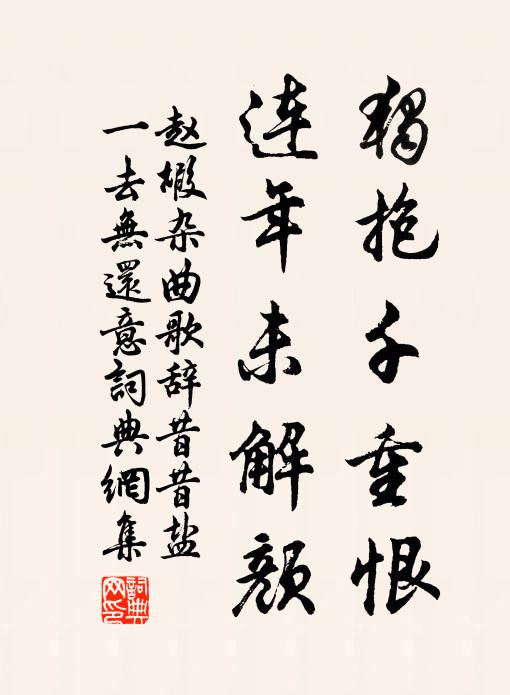 獨抱千重恨
連年未解顏
赵嘏杂曲歌辞昔昔盐
一去無還意詞典網集
詞典
网印